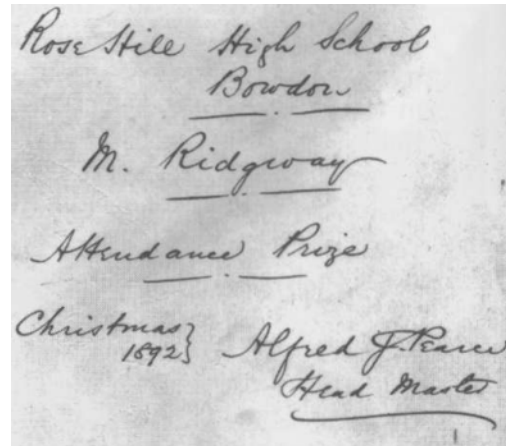 Rose Hill High School
Bowdon
M. Ridgway
Attendance Prize
Christmas } Alfred J. Pearce
1892 } Head Master